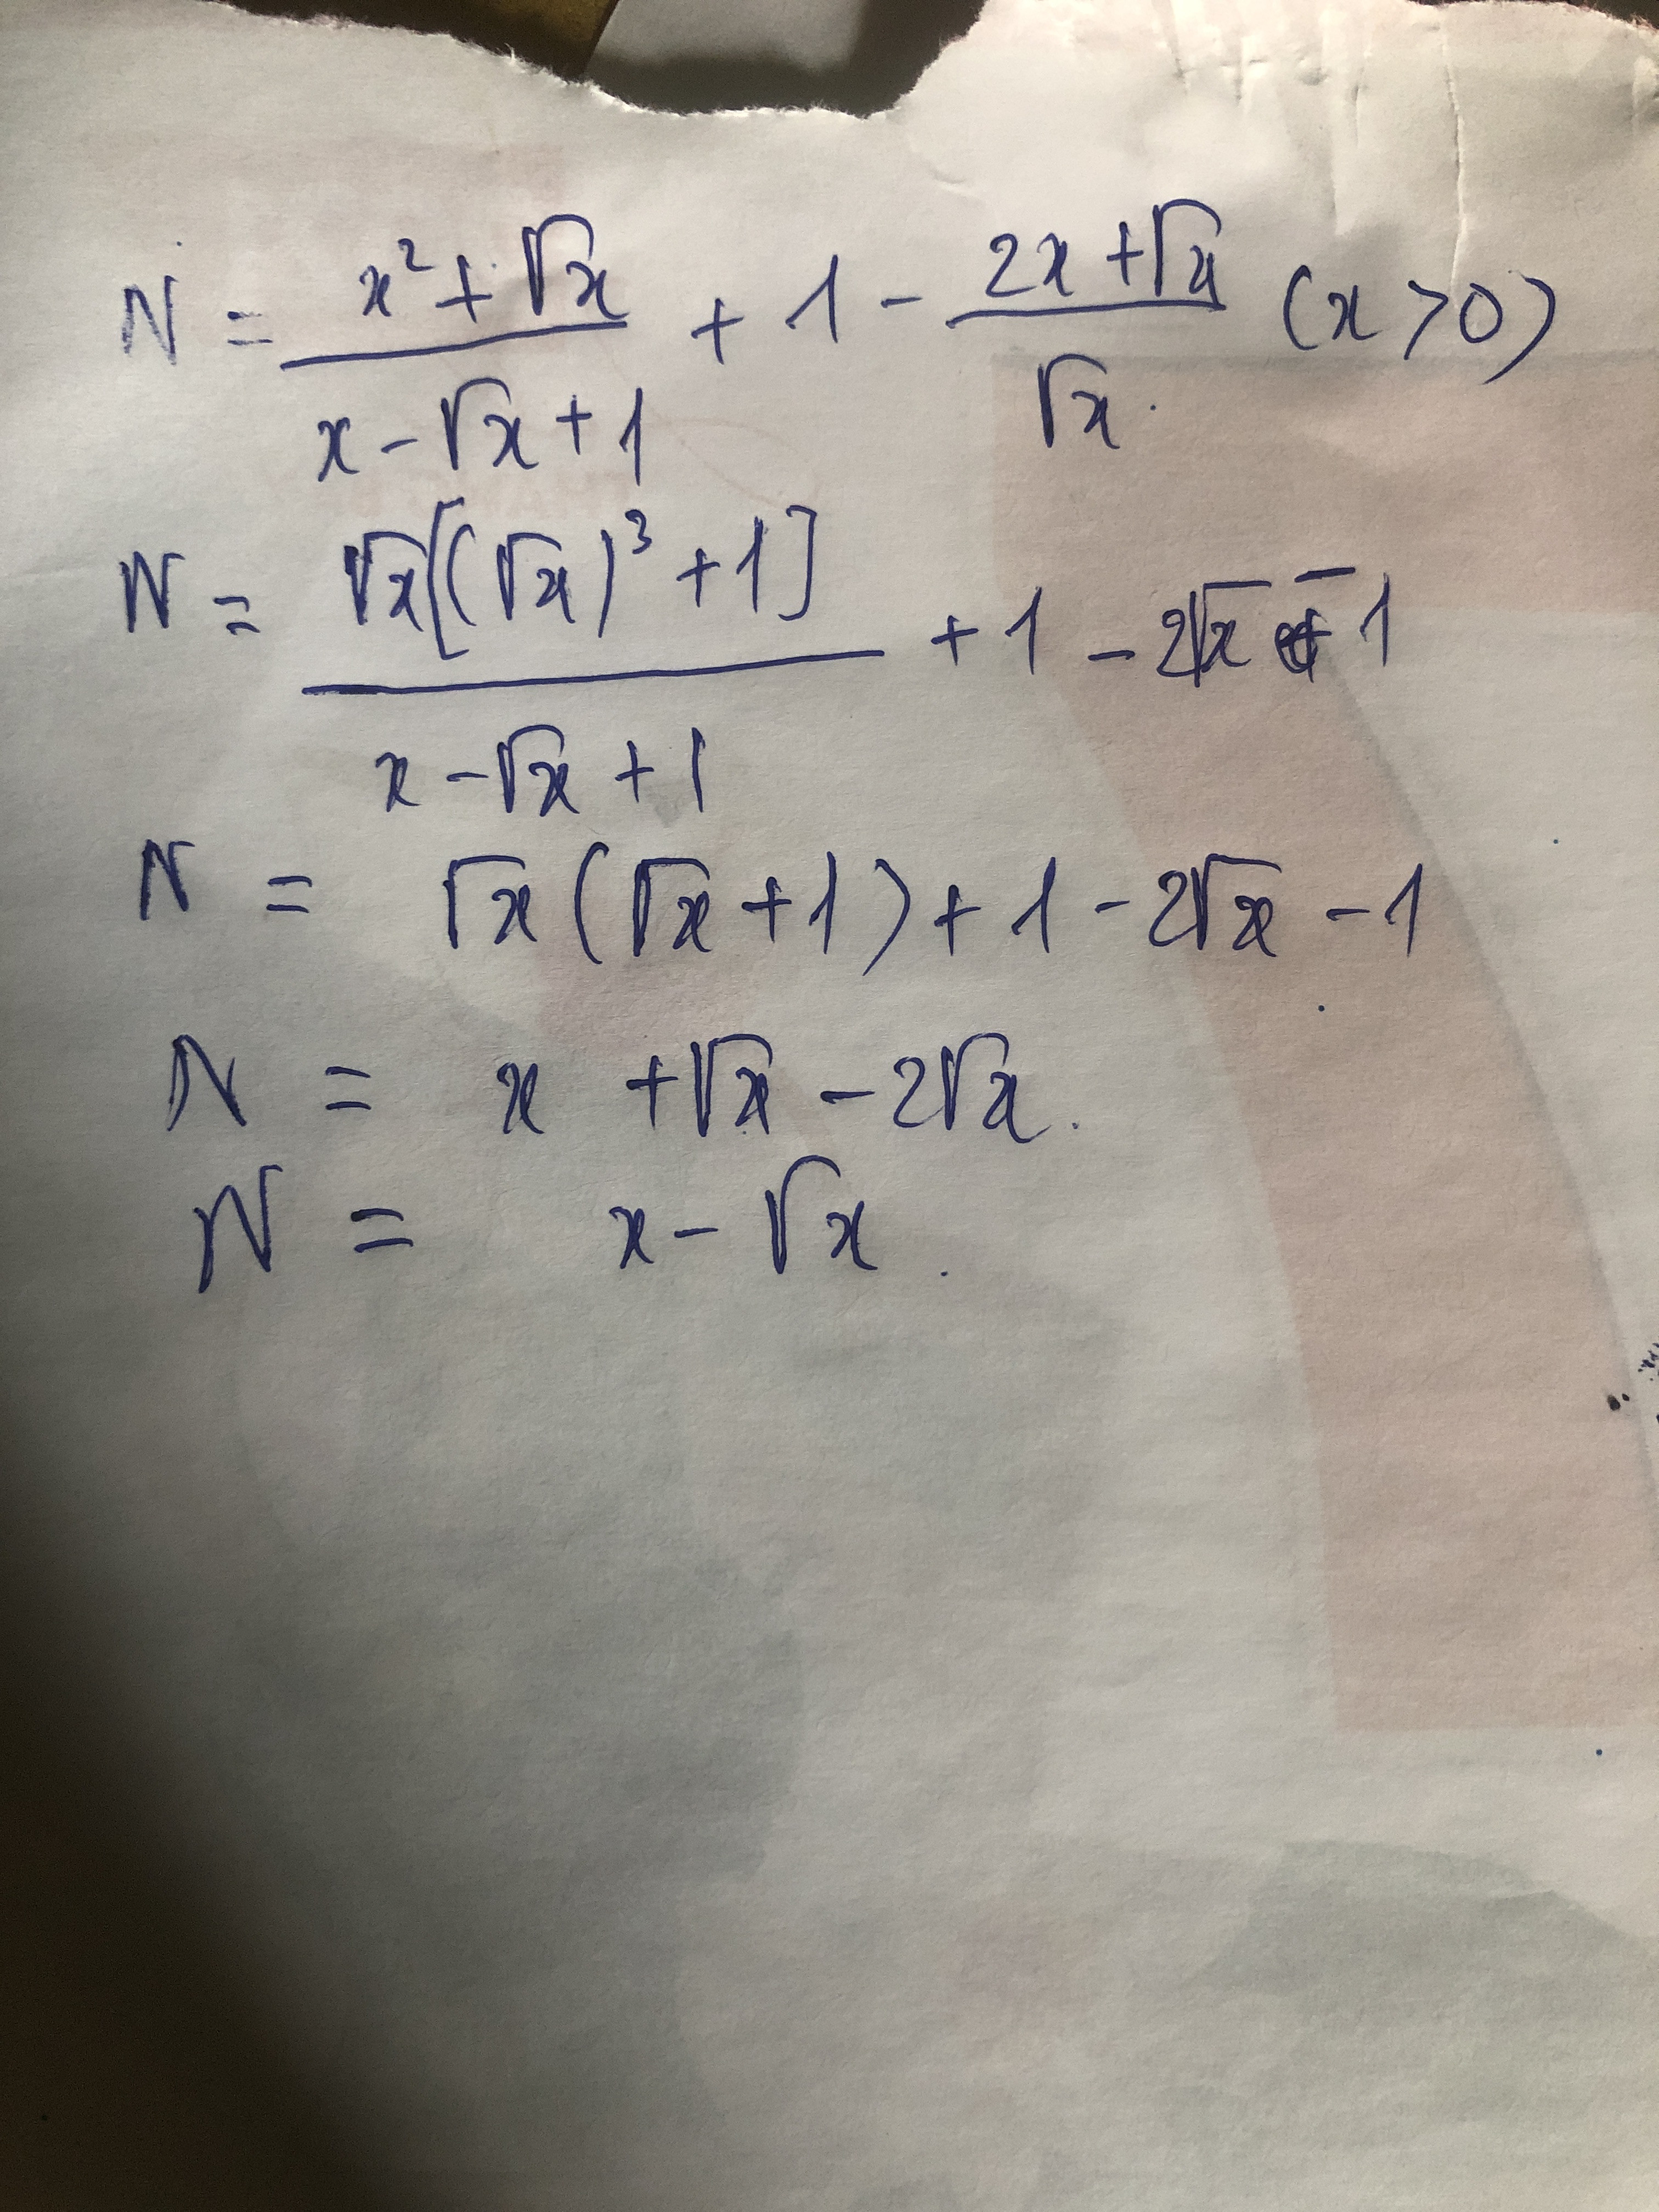 N = \frac{x^2 + \sqrt{x}}{x - \sqrt{x} + 1} + 1 - \frac{2x + \sqrt{x}}{\sqrt{x}} (x > 0)
N = \frac{\sqrt{x}[(\sqrt{x})^3 + 1]}{x - \sqrt{x} + 1} + 1 - 2\sqrt{x} - 1
N = \sqrt{x}(\sqrt{x} + 1) + 1 - 2\sqrt{x} - 1
N = x + \sqrt{x} - 2\sqrt{x}.
N = x - \sqrt{x}.